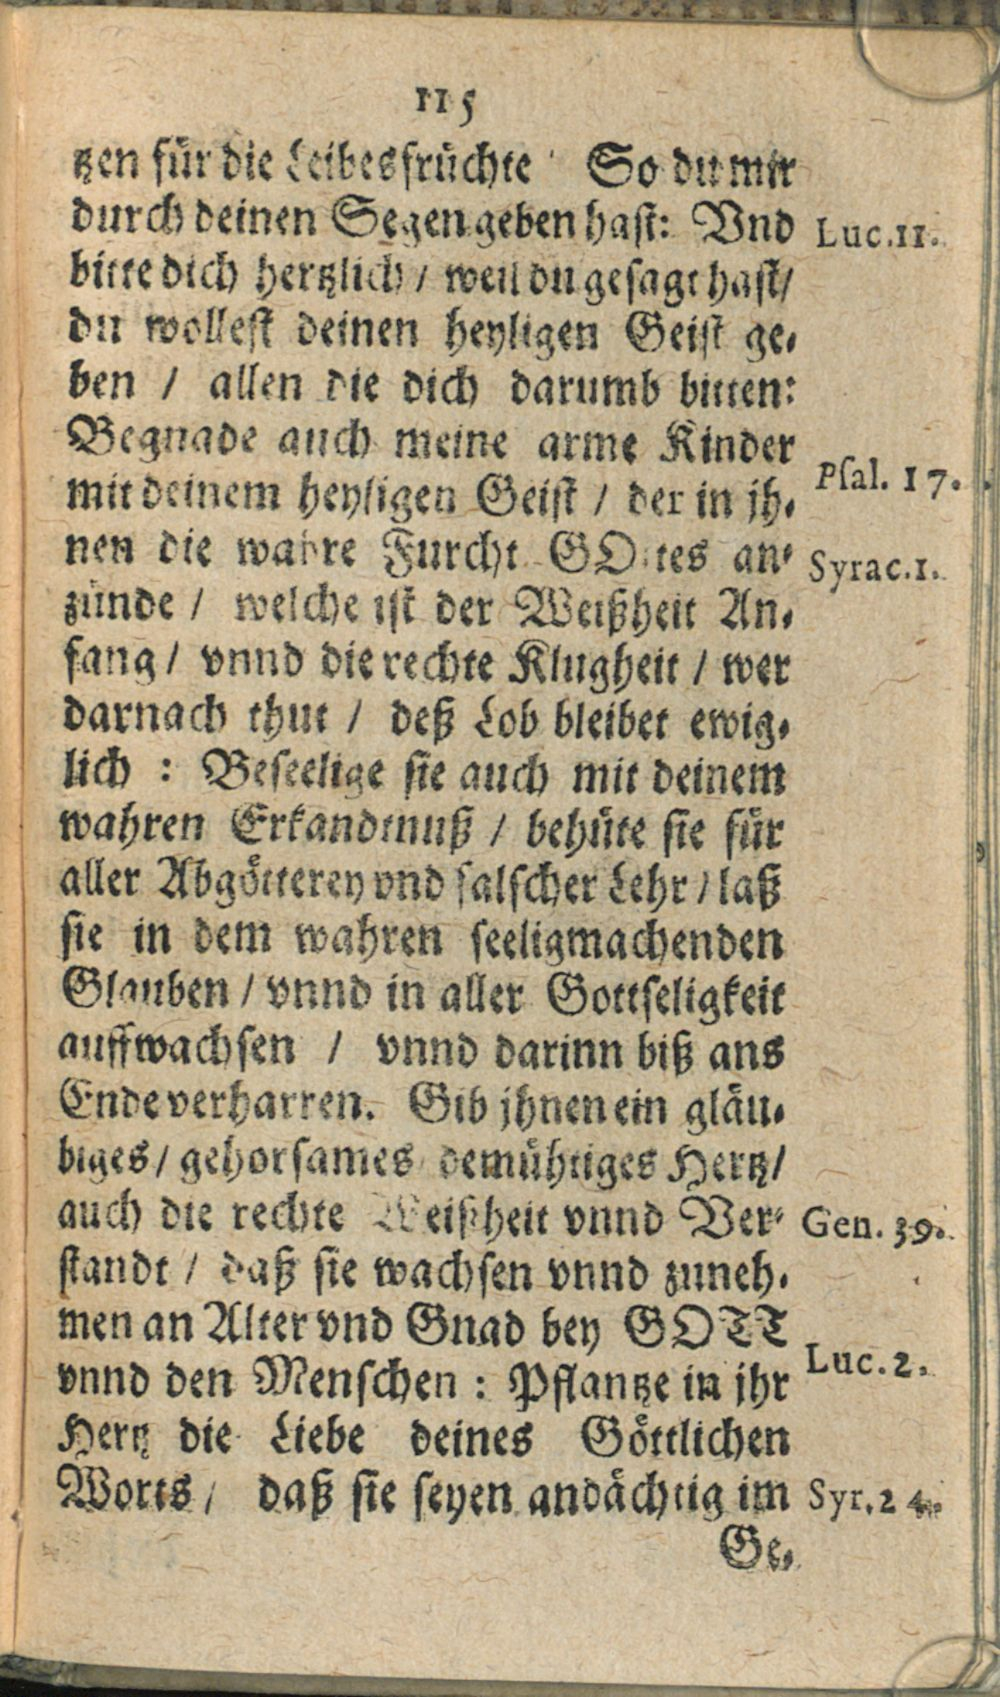 115
tzen für die Leibesfrüchte So du mir
durch deinen Segen geben hast: Vnd
Luc. 11.
bitte dich hertzlich / weil du gesagt hast /
du wollest deinen heyligen Geist ge-
ben / allen die dich darumb bitten:
Begnade auch meine arme Kinder
mit deinem heyligen Geist / der in jh-
Psal. 17.
nen die wahre Furcht GOttes an-
Syrac. 1.
zünde / welche ist der Weißheit An-
fang / vnnd die rechte Klugheit / wer
darnach thut / deß Lob bleibet ewig-
lich : Beseelige sie auch mit deinem
wahren Erkandtnuß / behüte sie für
aller Abgötterey vnd falscher Lehr / laß
sie in dem wahren seeligmachenden
Glauben / vnnd in aller Gottseligkeit
auffwachsen / vnnd darinn biß ans
Ende verharren. Gib jhnen ein gläu-
biges / gehorsames demühtiges Hertz /
auch die rechte Weißheit vnnd Ver-
Gen. 39.
standt / daß sie wachsen vnnd zuneh-
men an Alter vnd Gnad bey GOTT
Luc. 2.
vnnd den Menschen : Pflantze in jhr
Hertz die Liebe deines Göttlichen
Worts / daß sie seyen andächtig im
Syr. 24.
Ge-